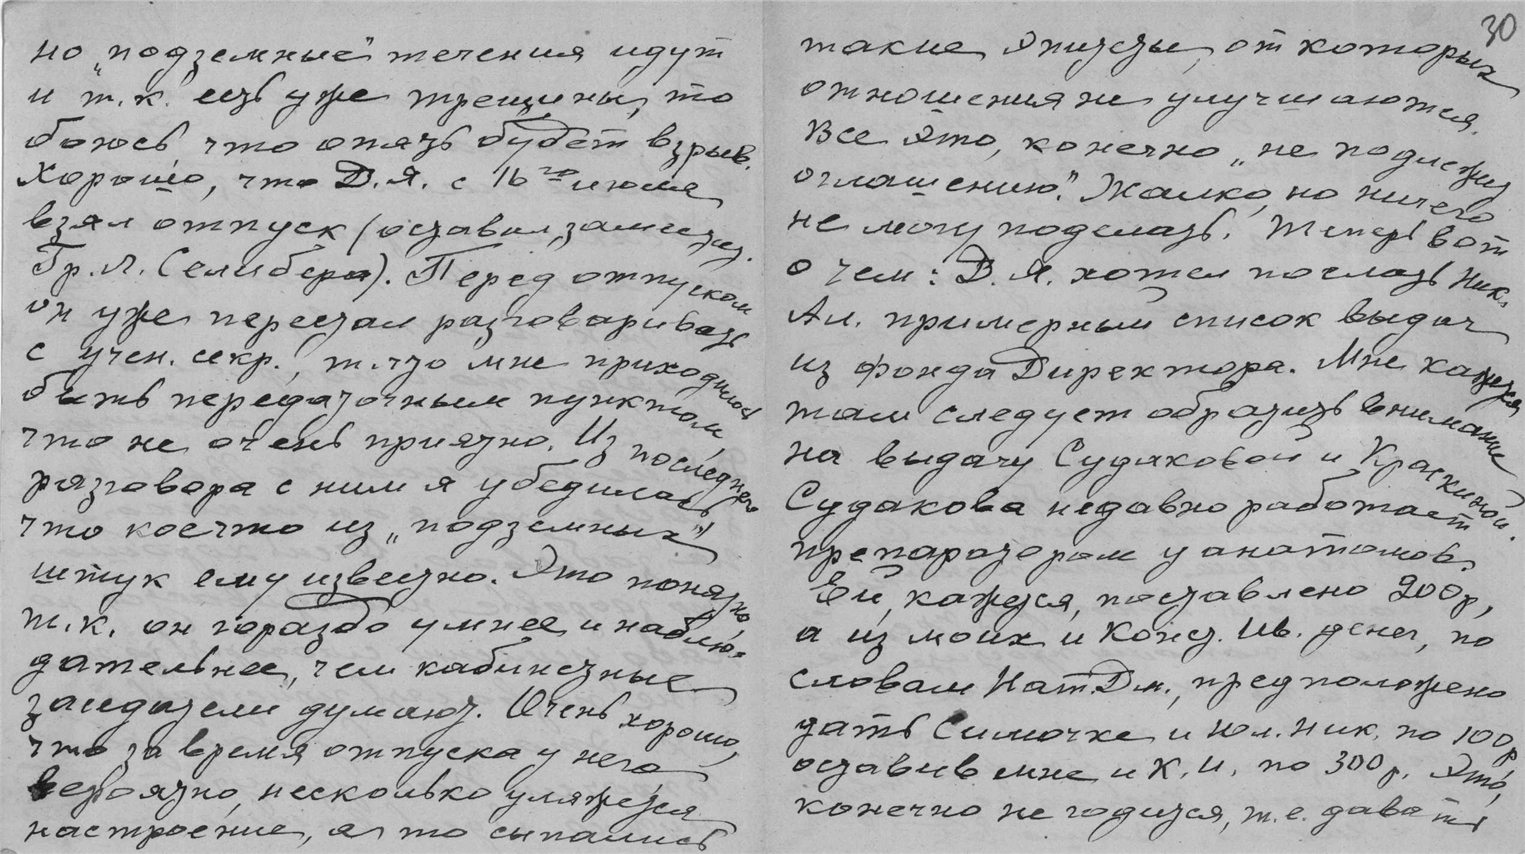 но „подземные" течения идут
и т.к. есть уже трещины, то
боюсь что опять будет взрыв.
Хорошо, что Д.Я. с 16го июля
взял отпуск (оставил заместит.
Гр.Л. Селибера). Перед отпуском
он уже перестал разговаривать
с учен. секр., т.что мне приходилось
быть передаточным пунктом
что не очень приятно. Из последнего
разговора с ним я убедилась
что кое что из „подземных"
штук ему известно. Это понятно
т.к. он гораздо умнее и наблю-
дательнее, чем кабинетные
заседатели думают. Очень хорошо,
что за время отпуска у него
вероятно несколько уляжется
настроение, а то сыпались
30
такие эпитеты, от которых
отношения не улучшаются.
Все это, конечно „не подлежит
оглашению". Жалко, но ничего
не могу поделать. Теперь вот
о чем: Д.Я. хотел послать Ник.
Ал. примерный список выдач
из фонда Директора. Мне кажется
там следует обратить внимание
на выдачу Судаковой и Краскиной.
Судакова недавно работает
препаратором у анатомов.
Ей, кажется, поставлено 200 р,
а из моих и Конст. Ив. денег, по
словам Нат.Дм., предположено
дать Симочке и Юл. Ник. по 100 р
оставив мне и К.И. по 300 р. Это,
конечно не годится, т.е. давать